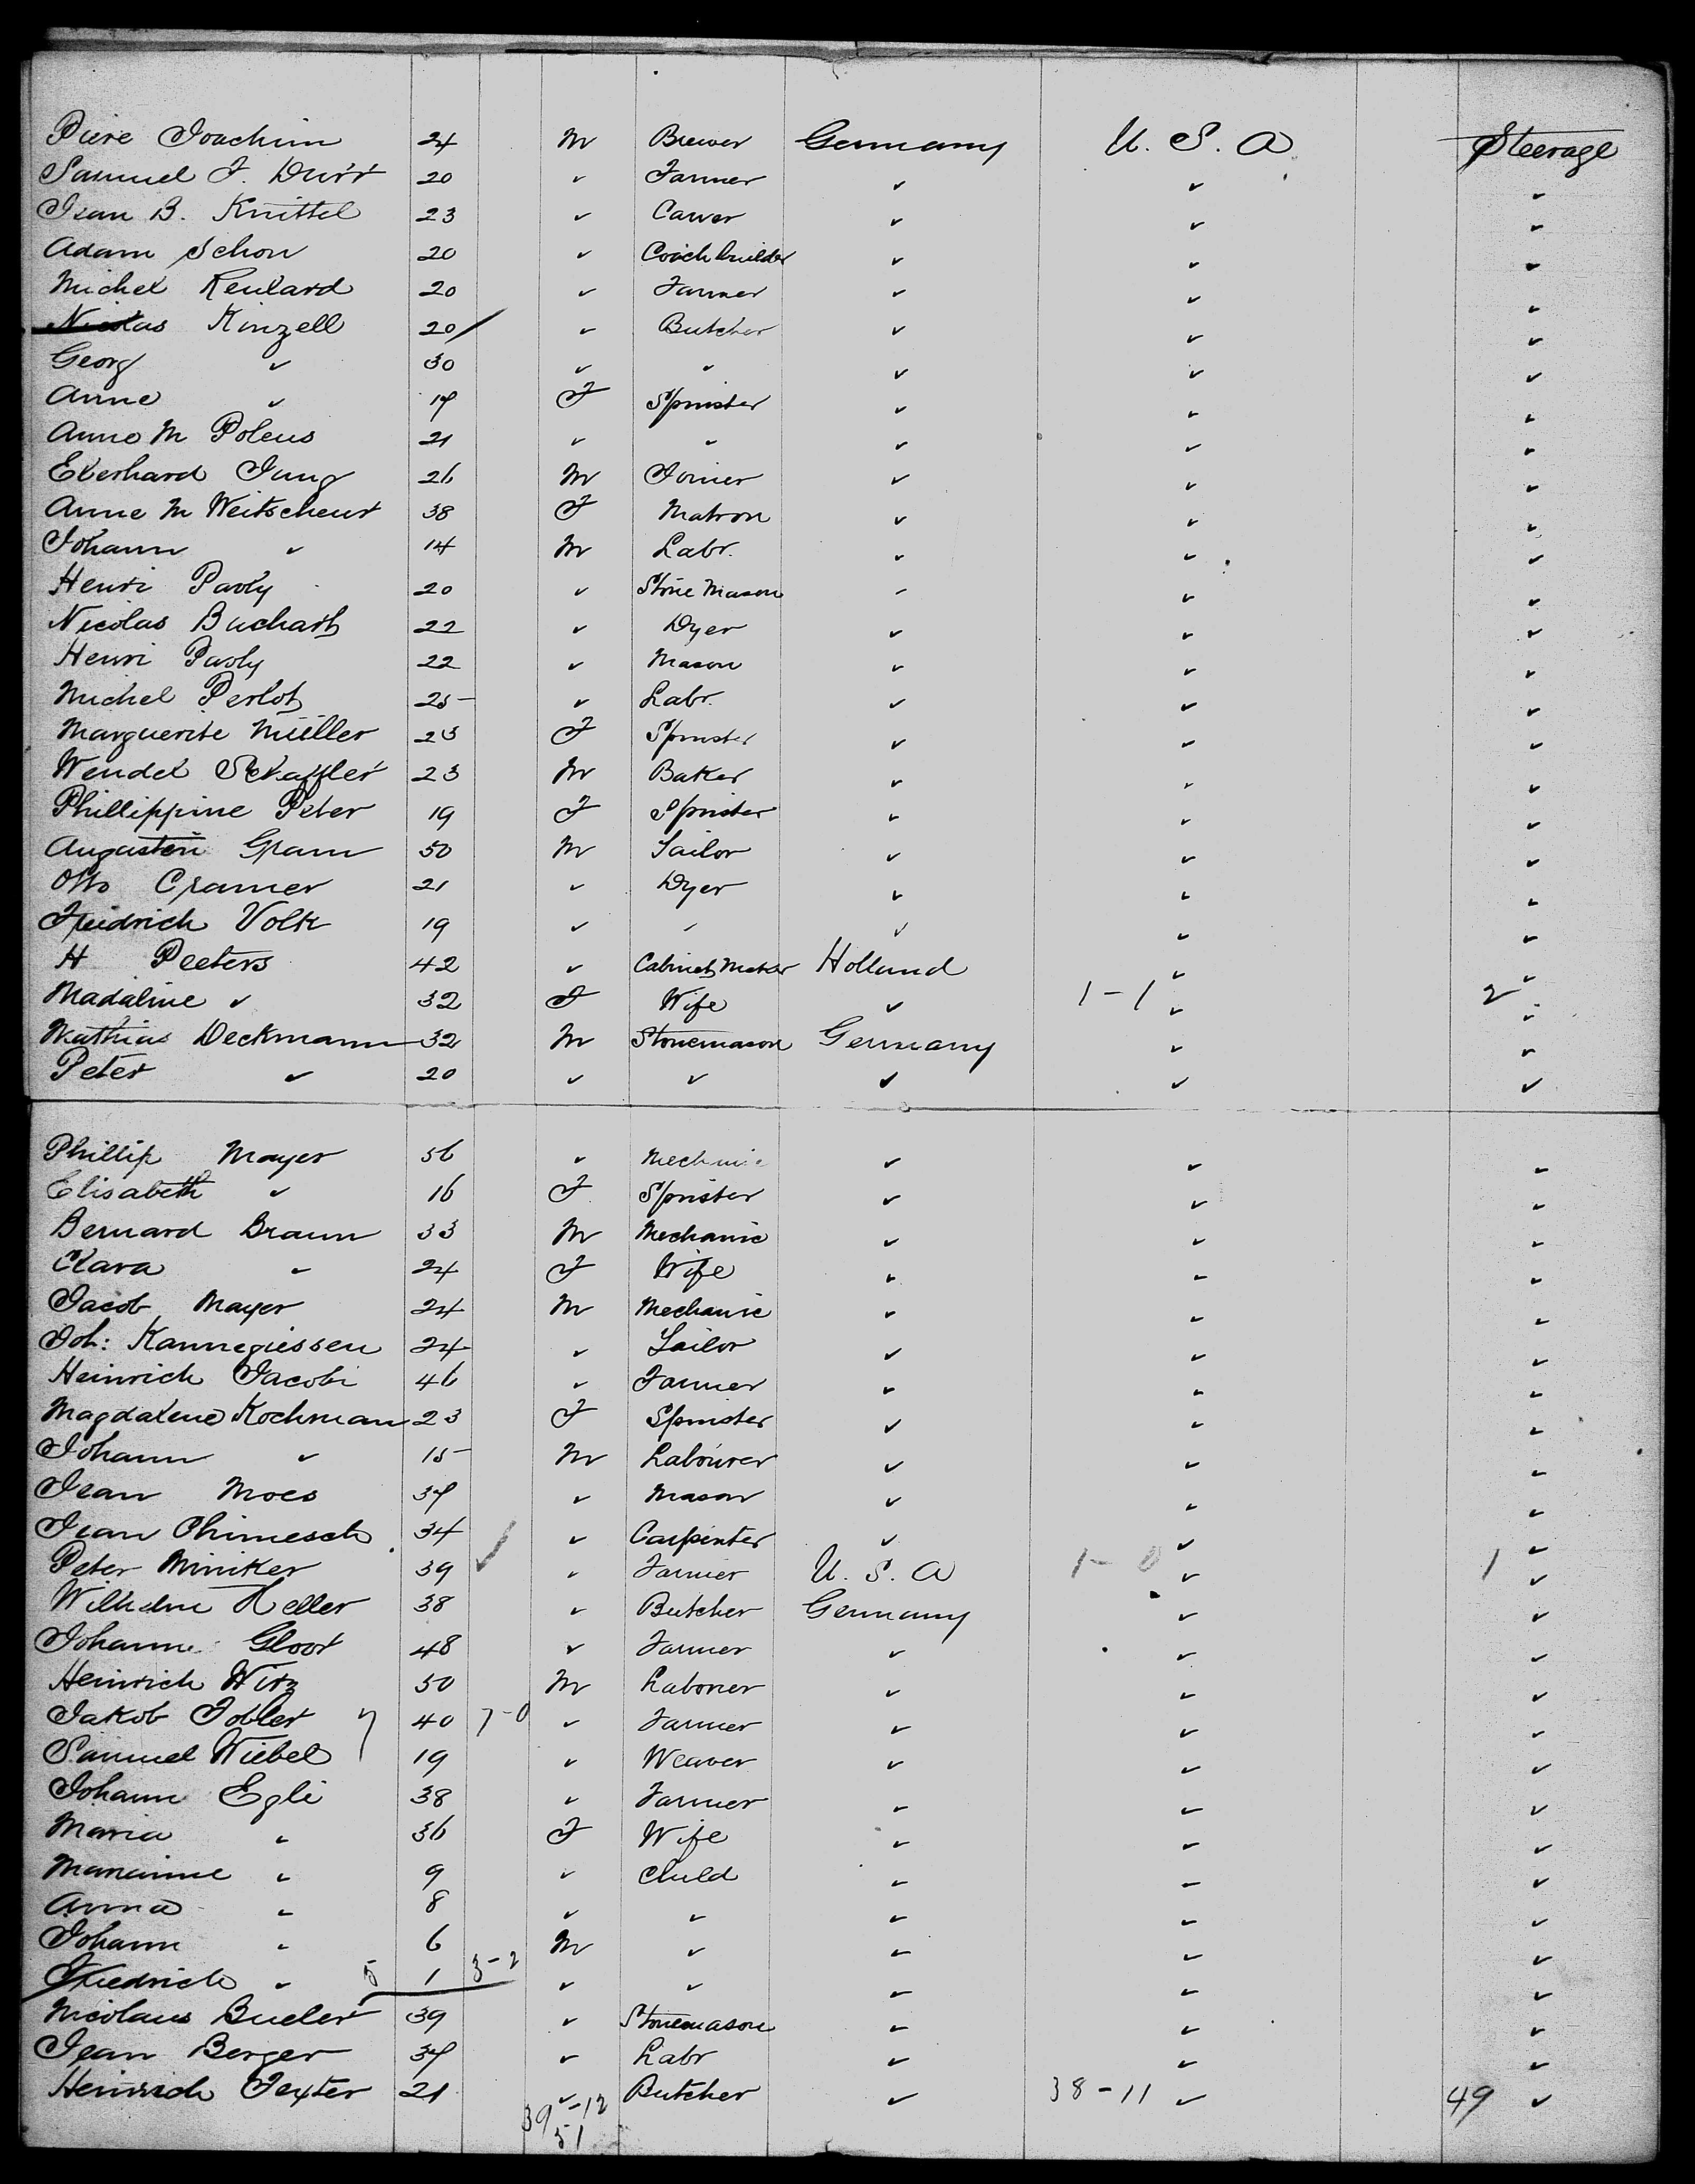 Piere Joachim 24 M Brewer Germany U. S. A Steerage
Samuel J. Durr 20 " Farmer " " "
Jean B. Knittel 23 " Carver " " "
Adam Schon 20 " Coach builder " " "
Michel Reulard 20 " Farmer " " "
Nicolas Kinzell 20 / " Butcher " " "
Georg " 30 " " " " "
Anne " 19 F Spinster " " "
Anne M Poleus 21 " " " " "
Eberhard Jung 26 M Joiner " " "
Anne M Weitscheur 38 F Matron " " "
Johann " 14 M Labr. " " "
Henri Paoly 20 " Stone Mason " " "
Nicolas Buchart 22 " Dyer " " "
Henri Paoly 22 " Mason " " "
Michel Perlot 25 " Labr. " " "
Marguerite Müller 23 F Spinster " " "
Wendel Schaffler 23 M Baker " " "
Phillippine Peter 19 F Spinster " " "
Augustin Gram 50 M Tailor " " "
Otto Cramer 21 " Dyer " " "
Friedrich Volk 19 " " " " "
H Peeters 42 " Cabinet Maker Holland " "
Madaline " 32 F Wife " 1-1 " 2 "
Mathias Deckmann 32 M Stonemason Germany " "
Peter " 20 " " " " "
Phillip Mayer 56 " Mechanic " " "
Elisabeth " 16 F Spinster " " "
Bernard Braun 33 M Mechanic " " "
Clara " 24 F Wife " " "
Jacob Mayer 24 M Mechanic " " "
Joh: Kannegiessen 24 " Tailor " " "
Heinrich Jacobi 46 " Farmer " " "
Magdalene Kochman 23 F Spinster " " "
Johann " 15 M Labourer " " "
Jean Moes 39 " Mason " " "
Jean Chimesch 34 " Carpenter " " "
Peter Miniker 39 ✓ " Farmer U. S. A 1-0 " 1 "
Wilhelm Heller 38 " Butcher Germany " "
Johann Gloor 48 " Farmer " " "
Heinrich Wirz 50 M Laborer " " "
Jakob Tobler 7 40 7-0 " Farmer " " "
Samuel Wiebel 19 " Weaver " " "
Johann Egli 38 " Farmer " " "
Maria " 36 F Wife " " "
Marianne " 9 " Child " " "
Anna " 8 " " " " "
Johann " 6 M " " " "
Friedrich " 5 1 3-2 " " " " "
Nicolaus Bueler 39 " Stonemason " " "
Jean Berger 39 " Labr " " "
Heinrich Texter 21 " Butcher " 38-11 " 49 "
39-12
51